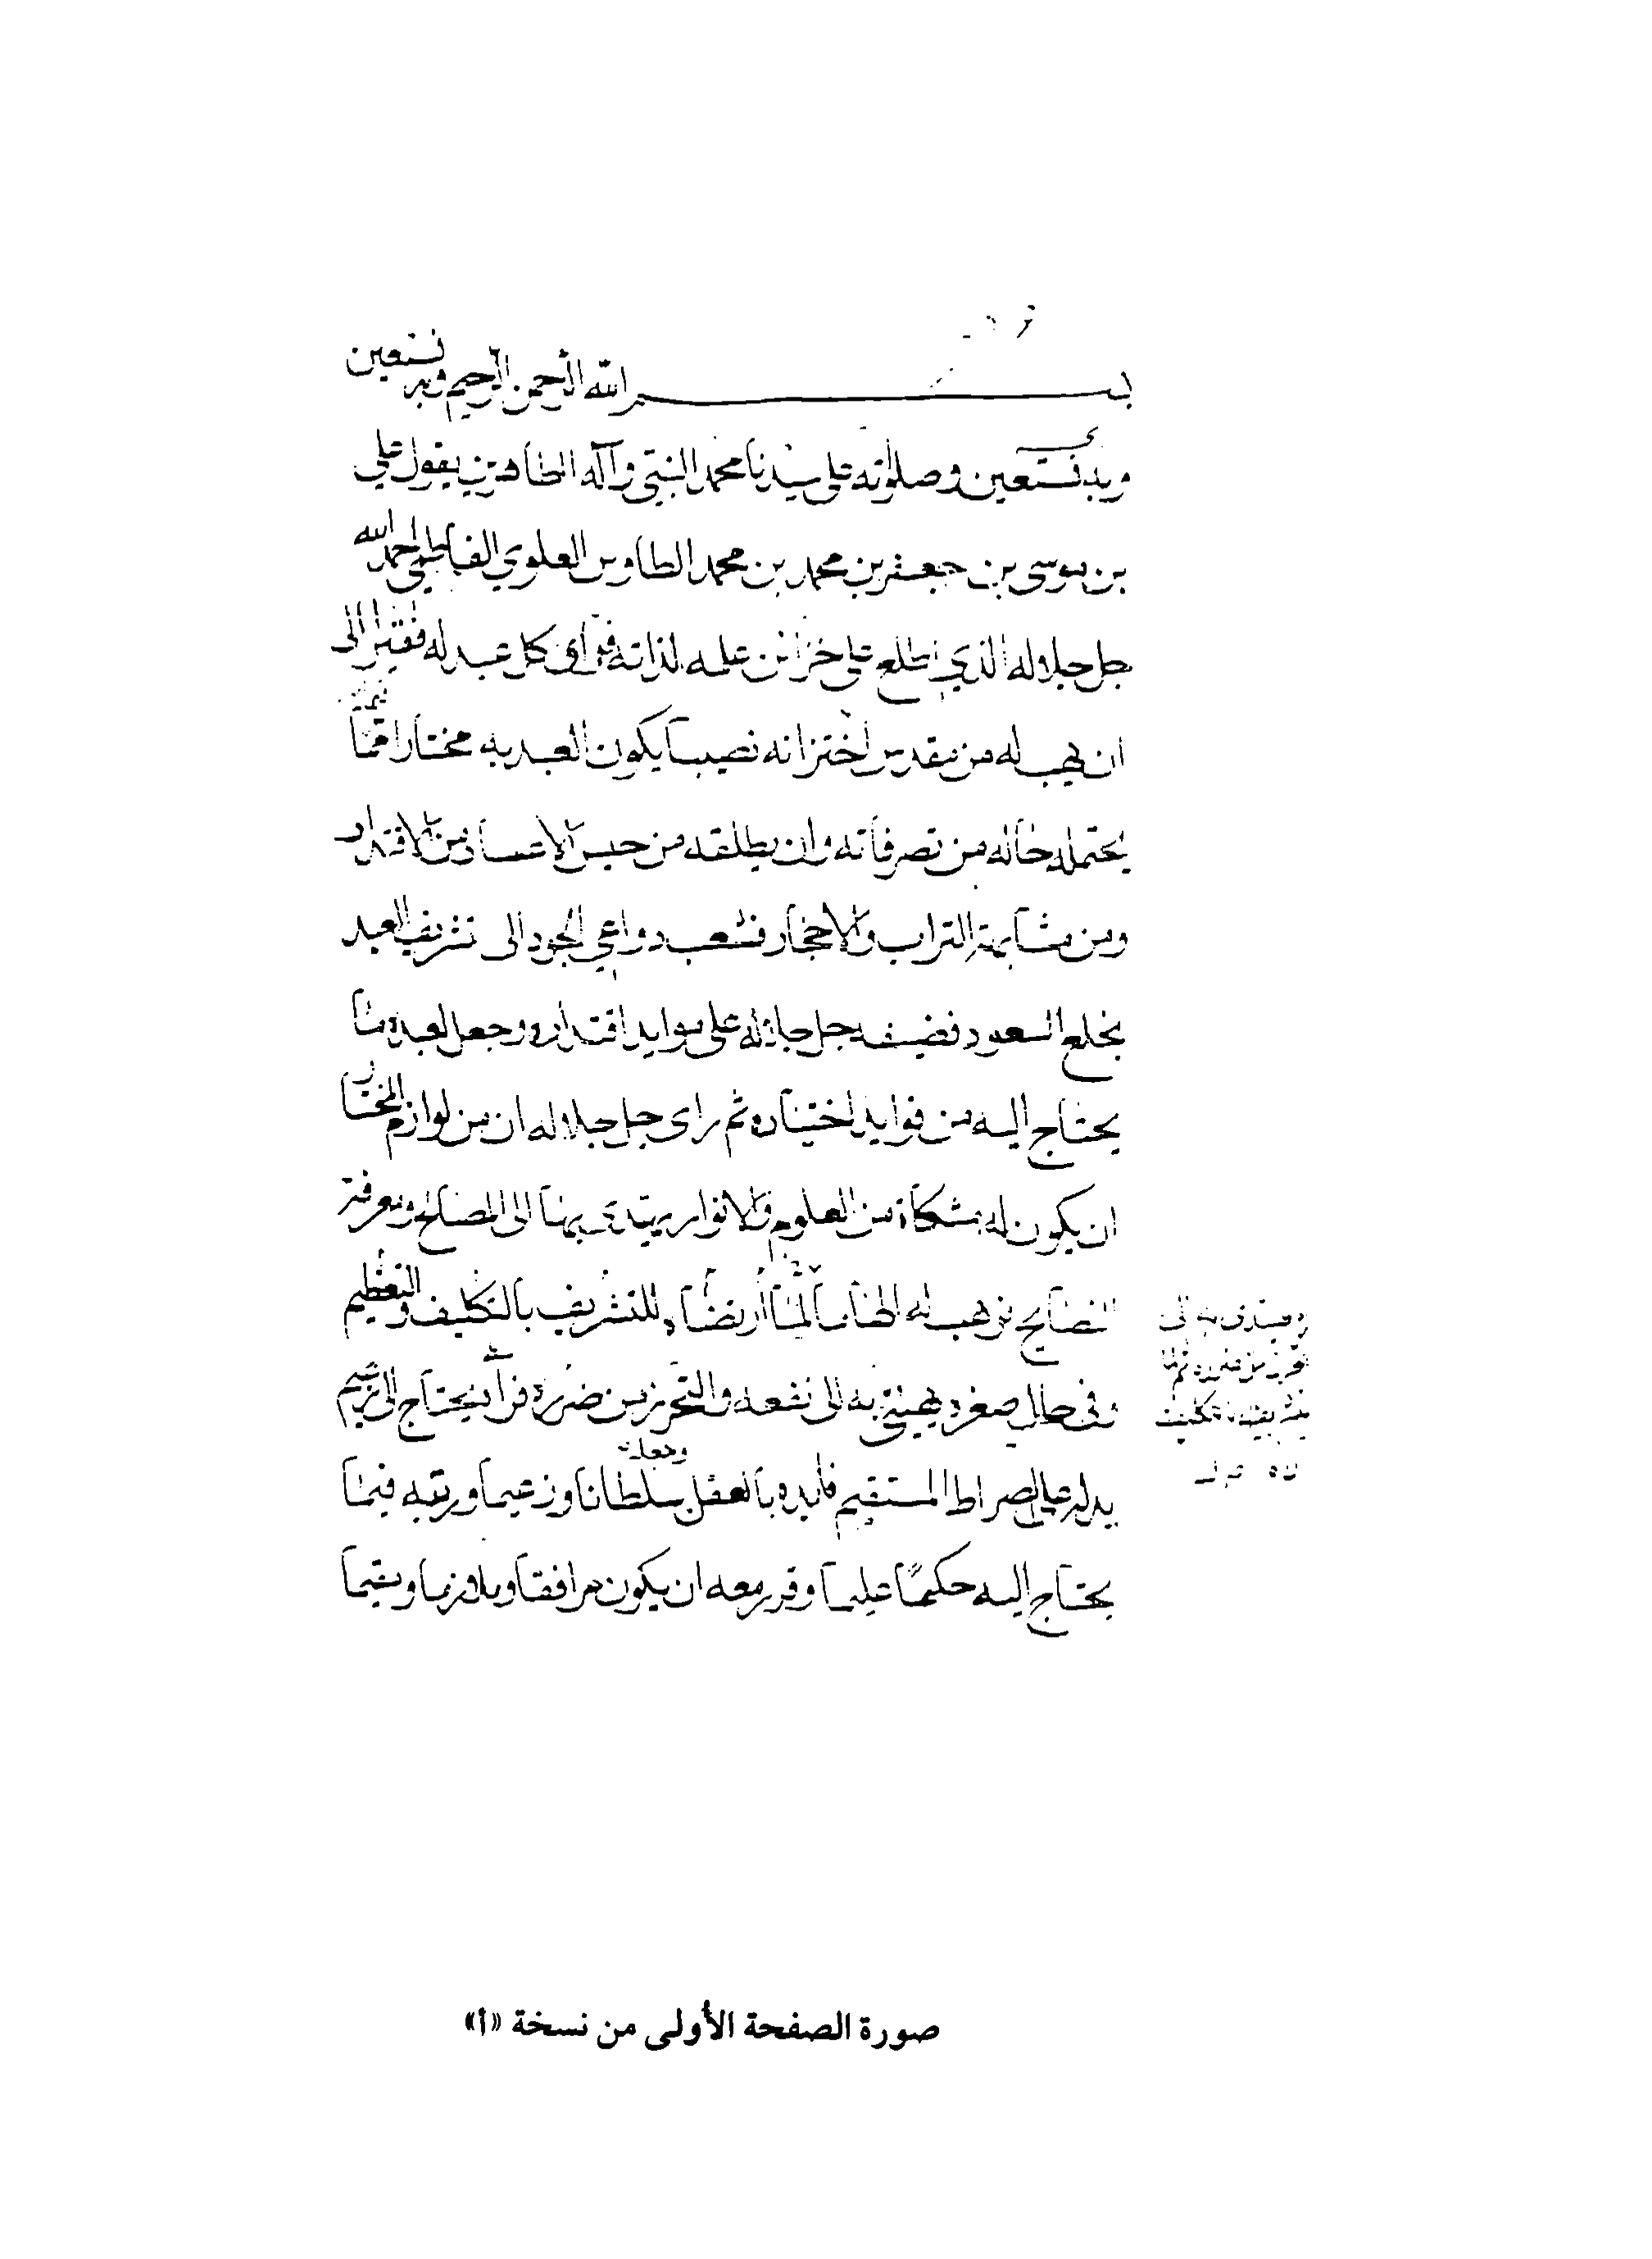 بسم الله الرحمن الرحيم وبه نستعين
وبه نستعين وصلوته على سيدنا محمد النبي وآله الطاهرين يقول علي
بن موسى بن جعفر بن محمد بن محمد الطاوس العلوي الفاطمي احمد الله
جل جلاله الذي اطلع على خزائن علمه لذاته فراى كل عبد له فقيرا الى
ان يهب له من مقدس اختزانه نصيبا يكون العبد به مختارا فيما
يحتمله حاله من تصرفاته وان يطلقه من حبس الاعسار من الاقتدار
ومن مشابهة التراب والاحجار فشعب دواعي الجود الى تشريف العبد
بخلع السعود فضيفه جل جلاله على موايد اقتداره وجعل لعبده ما
يحتاج اليه من فوايد اختياره ثم راى جل جلاله ان من لوازم المختار
ان يكون له مشكاة من العلوم والانوار يهتدي بها الى المصالح ومعرفة
النصايح فوهب له الهاما للتشريف بالتكليف والتعظيم
وفي حال صغره يهتدي به الى نفعه والتحرز من ضرره فرآه يحتاج الى
يدله على الصراط المستقيم فايده بالعقل وجعله سلطانا وزعيما ورتبه فيما
يحتاج اليه حكيما عليما وقرر معه ان يكون مرافقا وملازما ومقيما
صورة الصفحة الأولى من نسخة «أ»